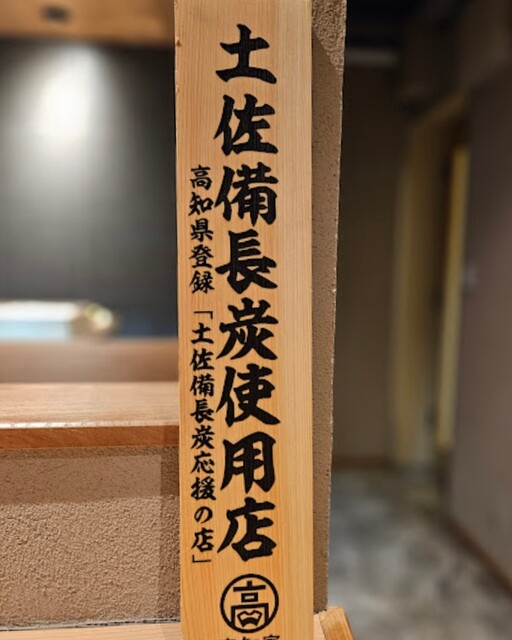 土佐備長炭使用店
高知県登録「土佐備長炭応援の店」
高